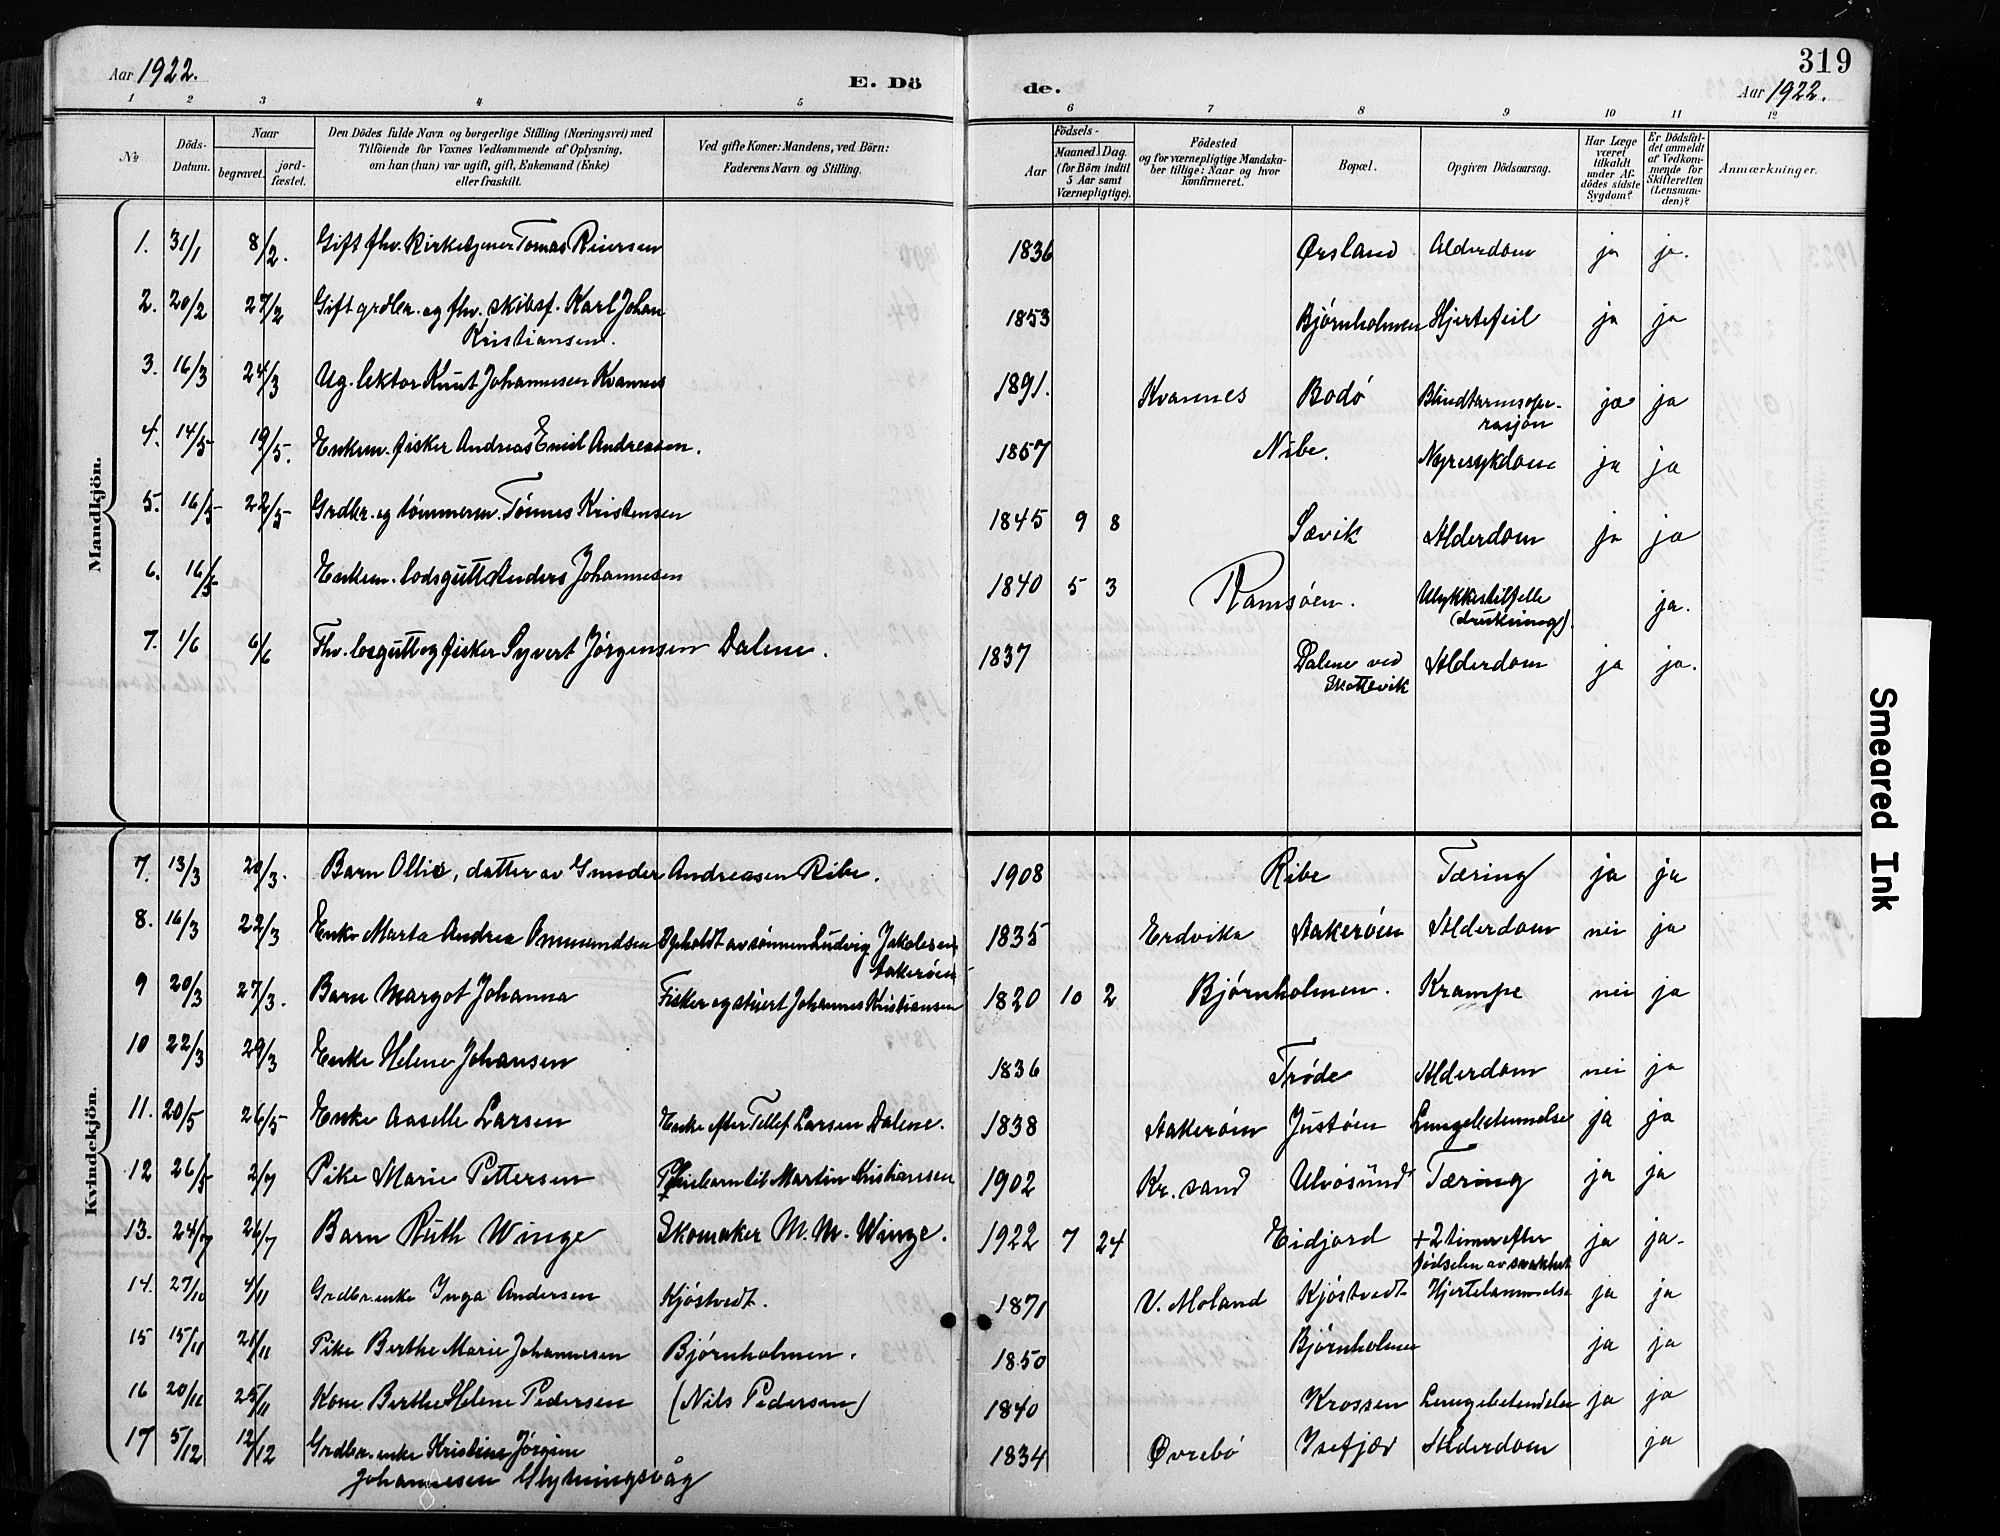 Aar 1922.
E. Döde.
319
Aar 1922.
1 2 3 4 5 6 7 8 9 10 11 12
№
Döds-Datum.
Naar
begravet.
jord-fæstet.
Den Dödes fulde Navn og borgerlige Stilling (Næringsvei) med
Tilföiende for Voxnes Vedkommende af Oplysning,
om han (hun) var ugift, gift, Enkemand (Enke)
eller fraskilt.
Ved gifte Koner: Mandens, ved Börn:
Faderens Navn og Stilling.
Födsels-
Aar
Maaned Dag.
(for Börn indtil
5 Aar samt
Værnepligtige).
Födested
og for værnepligtige Mandska-
ber tillige: Naar og hvor
konfirmeret.
Bopæl.
Opgiven Dödsaarsag.
Har Læge
været
tilkaldt
under Af-
dödes sidste
Sygdom?
Er Dödsfal-
det anmeldt
af Vedkom-
mende for
Skifteretten
(Lensman-
den)?
Anmærkninger.
Mandkjön.
1. 31/1 8/2. Gift fhv. Kirketjener Tomas Reiersen 1836 Ørsland Alderdom ja ja.
2. 20/2 27/2 Gift grdbr. og fhv. skibsf. Karl Johan 1853 Bjørnholmen Hjertefeil ja ja
Kristiansen.
3. 16/3 24/3 Ug. lektor Knut Johannesen Kvannes 1891. Kvannes Bodó Blindtarmsope-
rasjon ja ja
4. 14/5 19/5. Enkem. fisker Andreas Emil Andreassen. 1857 Nibe. Nyresykdom ja ja
5. 16/5 22/5 Grdbr. og tømmerm. Tónnes Kristensen 1845 9 8 Sævik Alderdom ja ja
6. 16/5 Enkem. lodsgutt Anders Johannesen 1840 5 3 Ramsóen. Ulykkestilfelle
(drukning). ja.
7. 1/6 6/6 Fhv. losgutt og fisker Syvert Jórgensen Dalene. 1837 Dalene ved
Skottevik Alderdom ja ja.
Kvindekjön.
7. 13/3 20/3. Barn Ollie, datter av Gunder Andreassen Ribe. 1908 Ribe Tæring ja ja
8. 16/3 22/3 Enke Marta Andrea Ommundsen Opholdt av sønnen Ludvig Jakobsen
Aakerøen 1835 Erdvika Aakerøen Alderdom nei ja
9 20/3 27/3. Barn Margot Johanna Fisker og stuert Johannes Kristiansen 1820 10 2 Bjørnholmen. Krampe nei ja
10 22/3 29/3 Enke Helene Johansen 1836 Tróde Alderdom nei ja
11. 20/5 26/5 Enke Aaselle Larsen Enke efter Tellef Larsen Dalene. 1838 Aakerøen Justóen Lungebetennelse ja ja
12 26/5 2/7 Pike Marie Pettersen Pleiebarn til Martin Kristiansen 1902 Kr. sand Ulvøsund Tæring ja ja
13. 24/7 26/7 Barn Ruth Winge Skomaker M. M. Winge. 1922 7 24 Eidjord + 2 timer efter
fødselen av svakhet ja ja.
14. 27/10 4/11 Grdbr.enke Inga Andersen Kjóstvedt. 1871 V. Moland Kjóstvedt Hjertelammelse ja ja
15 15/11 21/11 Pike Berthe Marie Johannesen Bjørnholmen. 1850 Bjørnholmen ja ja
16 20/11 25/11 Kone Berthe Helene Pedersen (Nils Pedersen) 1840 Krossen Lungebetendelse ja ja
17 5/12 12/12 Grdbr.enke Kristine Jórgine 1834 Øvrebó Isefjær Alderdom ja
Johannesen Glytningsvåg
Smeared Ink